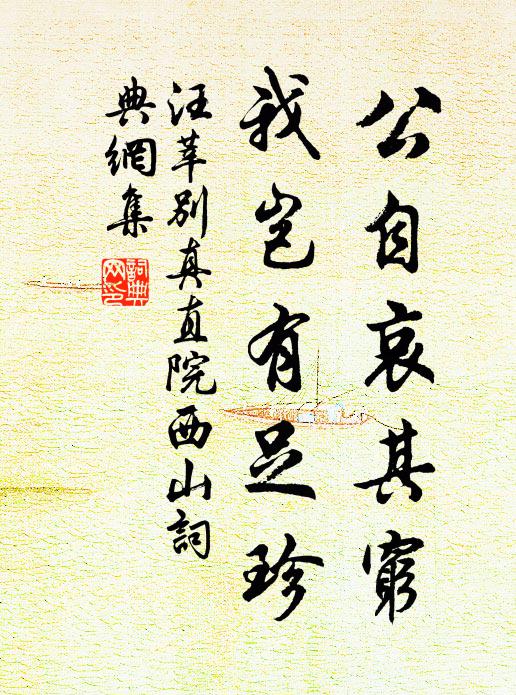 公自哀其窮
我豈有足珍
汪莘別真直院西山詞
典網集
詞典
网印